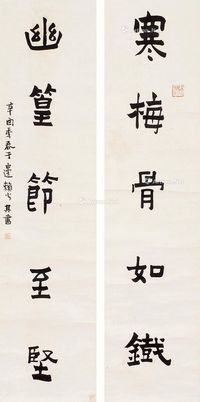 寒梅骨如鐵
幽篁節至堅
辛酉季春于邊賴少其書